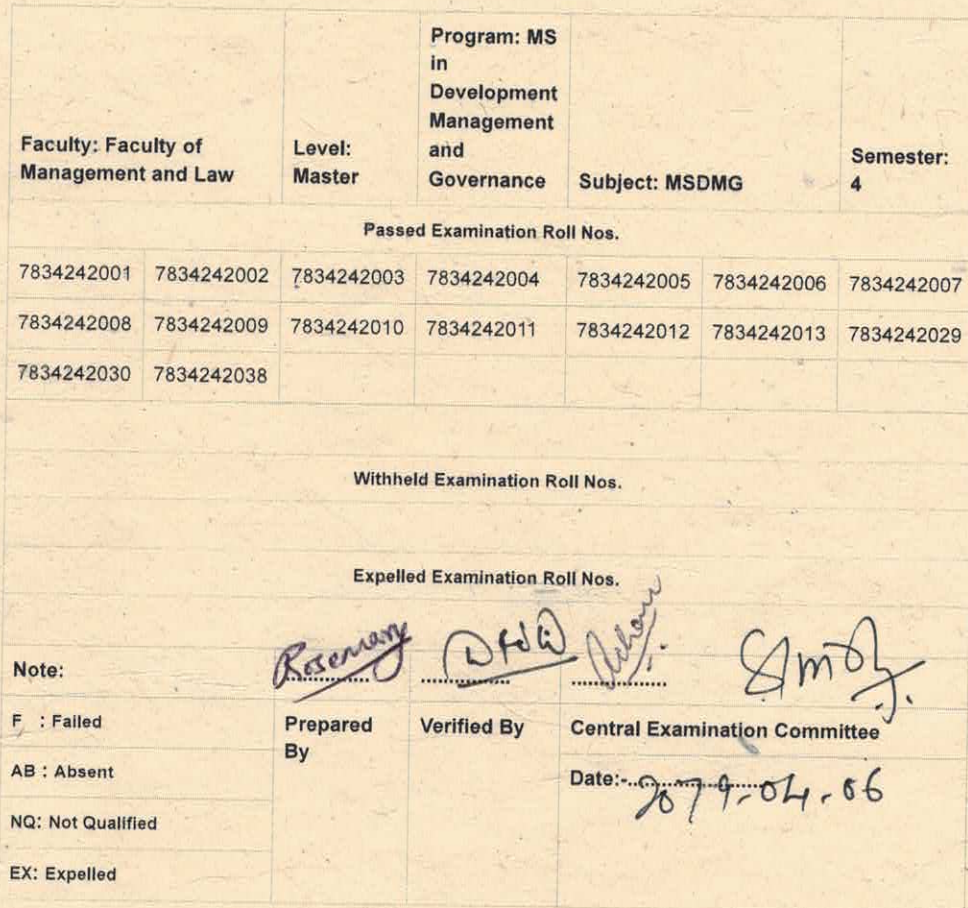 Faculty: Faculty of Management and Law
Level: Master
Program: MS in Development Management and Governance
Subject: MSDMG
Semester: 4
Passed Examination Roll Nos.
7834242001 7834242002 7834242003 7834242004 7834242005 7834242006 7834242007
7834242008 7834242009 7834242010 7834242011 7834242012 7834242013 7834242029
7834242030 7834242038
Withheld Examination Roll Nos.
Expelled Examination Roll Nos.
Note:
Rosemary
F : Failed
Prepared By
Verified By
Central Examination Committee
AB : Absent
Date:- 2079-04-06
NQ: Not Qualified
EX: Expelled